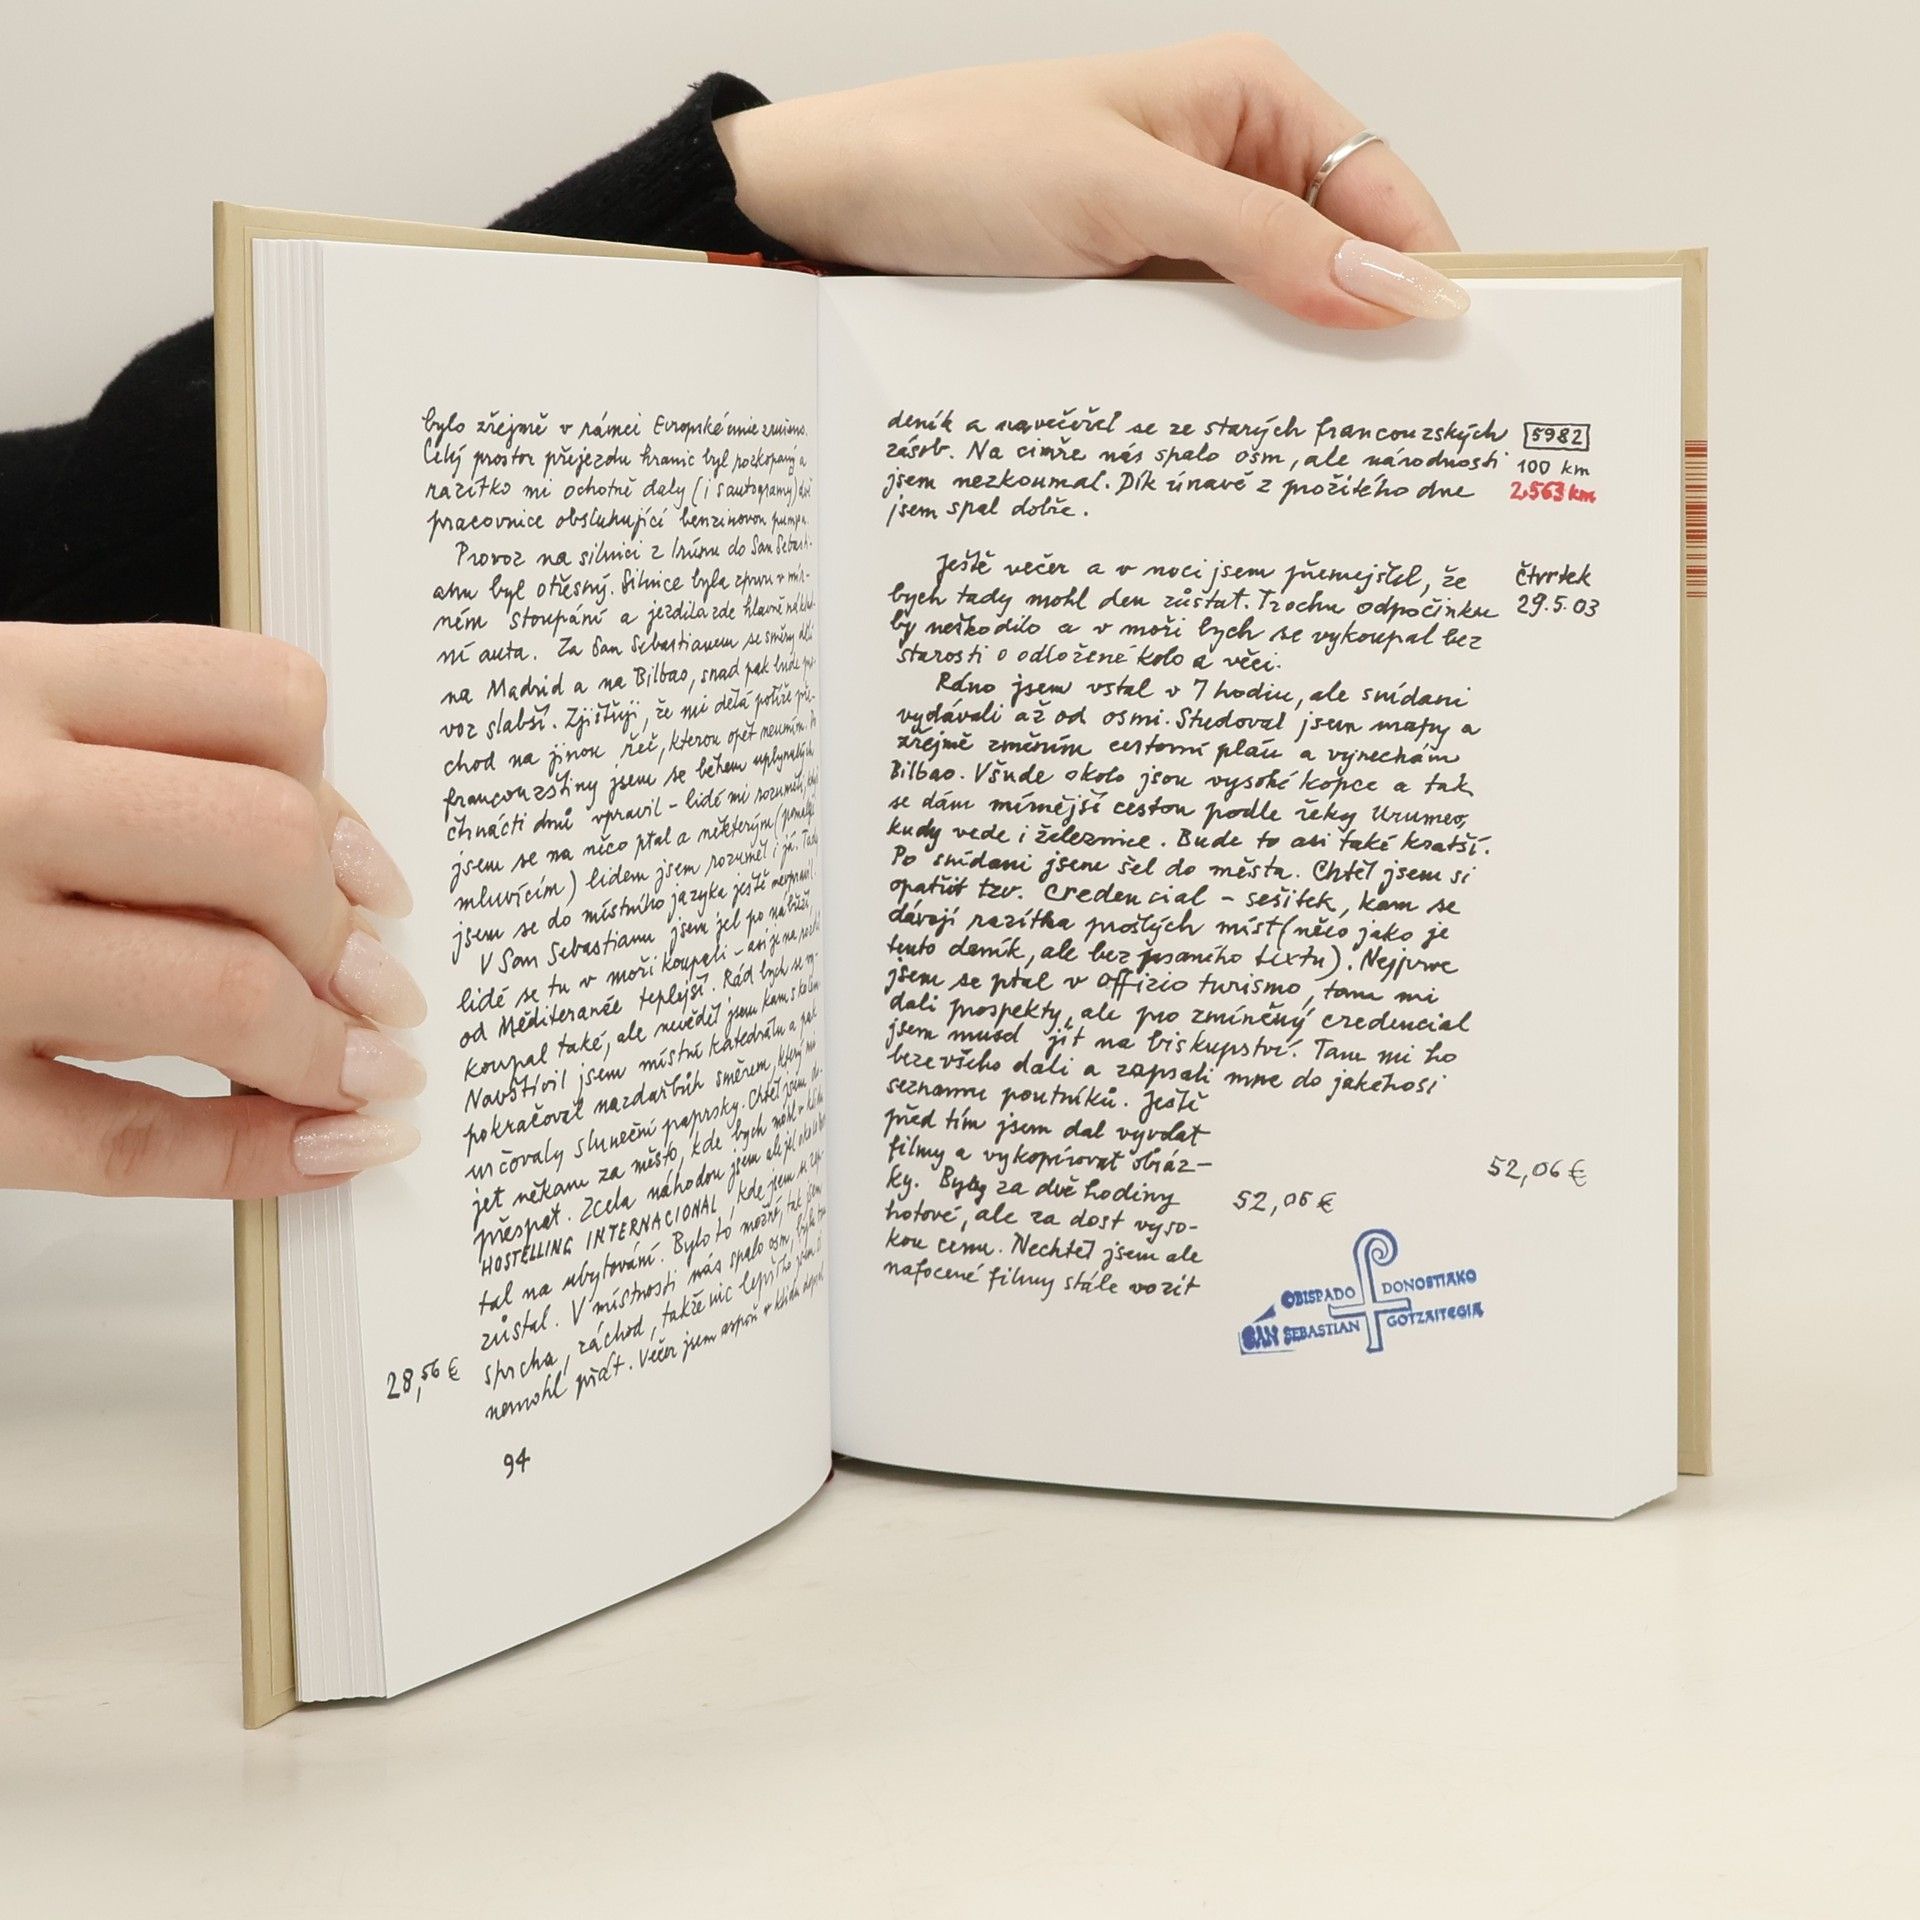 bylo zřejmě v rámci Evropské unie zrušeno.
Celý prostor přejezdu hranic byl rozkopaný a
razítko mi ochotně daly (i s autogramy) dvě
pracovnice obsluhující benzinovou pumpu.
Provoz na silnici z Irúnu do San Sebasti-
anu byl otřesný. Silnice byla zprvu v mír-
ném stoupání a jezdila zde hlavně náklad-
ní auta. Za San Sebastianem se směry dělí
na Madrid a na Bilbao, snad pak bude pro-
voz slabší. Zjišťuji, že mi dělá potíže pře-
chod na jinou řeč, kterou opět neumím. Do
francouzštiny jsem se během uplynulých
čtrnácti dnů vpravil - lidé mi rozuměli, když
jsem se na něco ptal a některým (pomalu
mluvícím) lidem jsem rozuměl i já. Tady
jsem se do místního jazyka ještě nevpravil.
V San Sebastianu jsem jel po nábřeží,
lidé se tu v moři koupali - asi je na rozdíl
od Méditeranée teplejší. Rád bych se vy-
koupal také, ale nevěděl jsem kam s kolem.
Navštívil jsem místní katedrálu a pak
pokračoval nazdařbůh směrem, který mi
určovaly sluneční paprsky. Chtěl jsem do-
jet někam za město, kde bych mohl v klidu
přespat. Zcela náhodou jsem ale jel okolo
HOSTELLING INTERNACIONAL, kde jsem se zep-
tal na ubytování. Bylo to možné, tak jsem
zůstal. V místnosti nás spalo osm, byla tu
sprcha, záchod, takže nic lepšího jsem si
nemohl přát. Večer jsem aspoň v klidu dopsal
28,56 €
94
deník a navečeřel se ze starých francouzských
zásob. Na cimře nás spalo osm, ale národnosti
jsem nezkoumal. Dík únavě z prožitého dne
jsem spal dobře.
5982
100 km
2.563 km
Ještě večer a v noci jsem přemejšlel, že
bych tady mohl den zůstat. Trochu odpočinku
by neškodilo a v moři bych se vykoupal bez
starosti o odložené kolo a věci.
čtvrtek
29.5.03
Ráno jsem vstal v 7 hodin, ale snídani
vydávali až od osmi. Studoval jsem mapy a
zřejmě změním cestovní plán a vynechám
Bilbao. Všude okolo jsou vysoké kopce a tak
se dám mírnější cestou podle řeky Urumeo,
kudy vede i železnice. Bude to asi také kratší.
Po snídani jsem šel do města. Chtěl jsem si
opatřit tzv. credencial - sešitek, kam se
dávají razítka prošlých míst (něco jako je
tento deník, ale bez psaního textu). Nejprve
jsem se ptal v Offizio turismo, tam mi
dali prospekty, ale pro zmíněný credencial
jsem musel jít na biskupství. Tam mi ho
beze všeho dali a zapsali mne do jakéhosi
seznamu poutníků. Ještě
před tím jsem dal vyvolat
filmy a vykopírovat obráz-
ky. Byly za dvě hodiny
hotové, ale za dost vyso-
kou cenu. Nechtěl jsem ale
nafocené filmy stále vozit
52,06 €
52,06 €
OBISPADO DONOSTIAKO
SAN SEBASTIAN GOTZAITEGIA